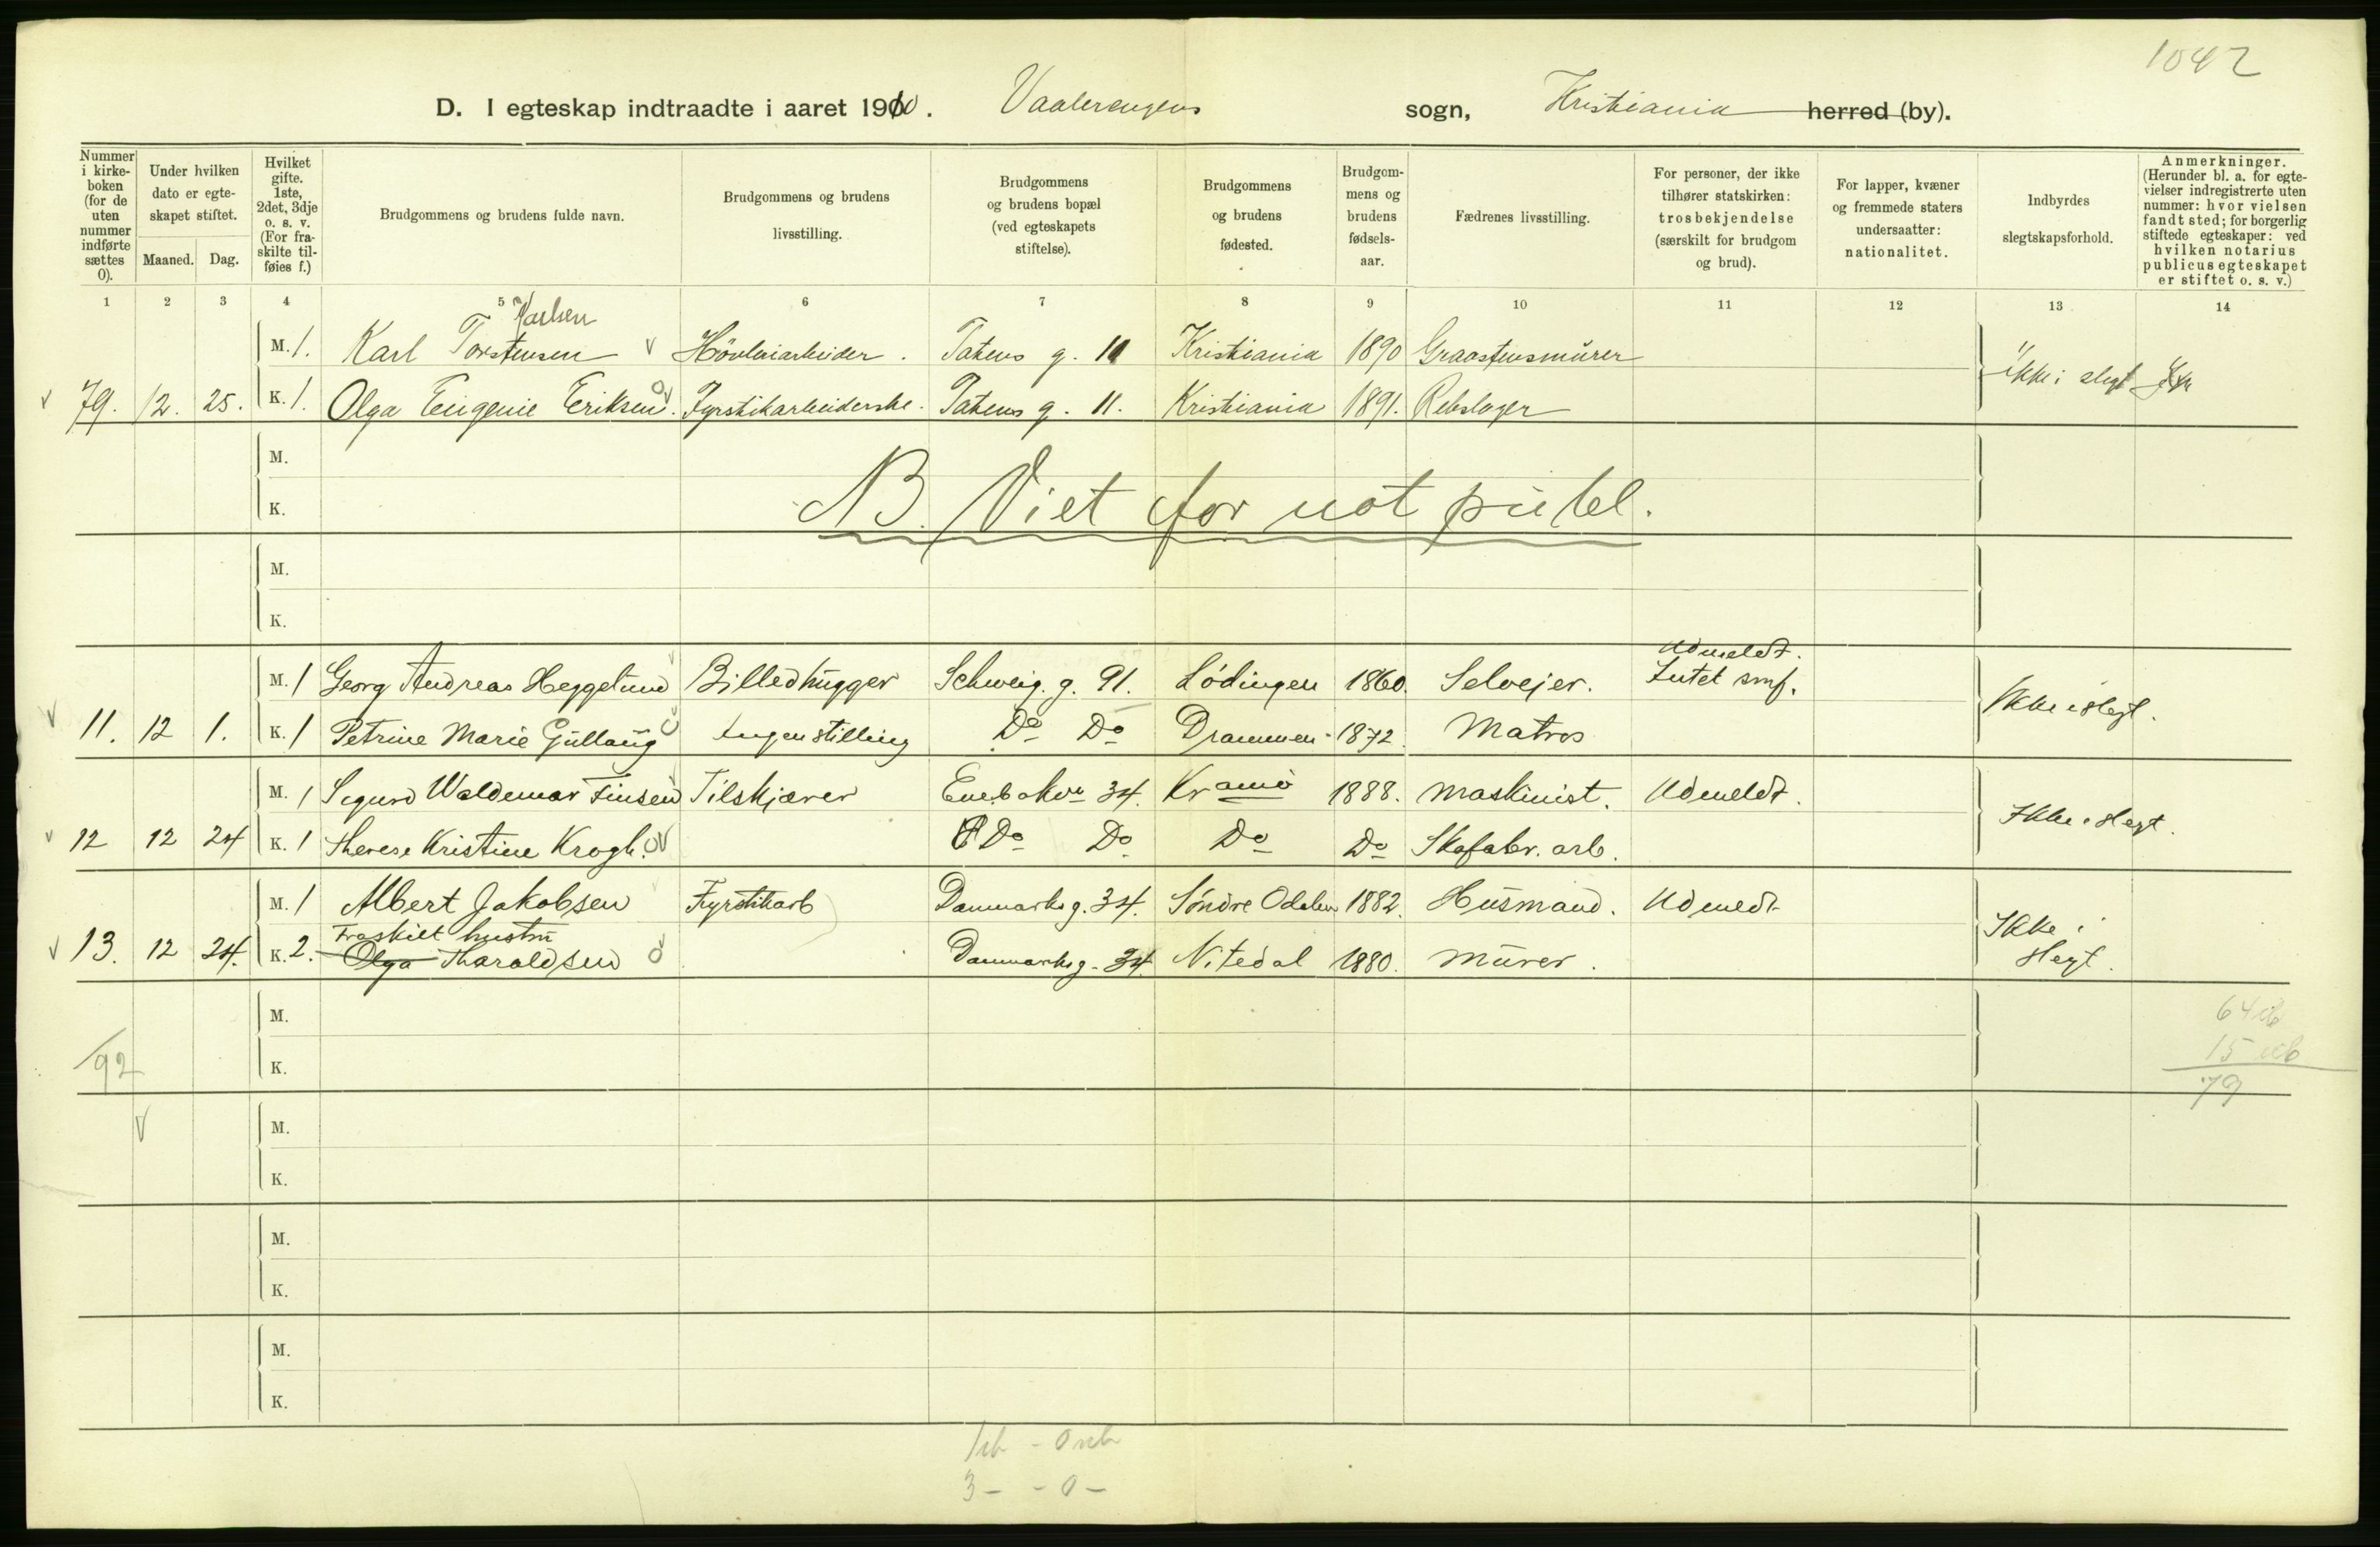 1042
D. I egteskap indtraadte i aaret 1910. Vaalerengens sogn, Kristiania herred (by).
Nummer i kirke-boken (for de uten nummer indførte sættes 0).
Under hvilken dato er egte-skapet stiftet.
Maaned. Dag.
Hvilket gifte. 1ste, 2det, 3dje o. s. v. (For fra-skilte til-føies f.)
Brudgommens og brudens fulde navn.
Brudgommens og brudens livsstilling.
Brudgommens og brudens bopæl (ved egteskapets stiftelse).
Brudgommens og brudens fødested.
Brudgom-mens og brudens fødsels-aar.
Fædrenes livsstilling.
For personer, der ikke tilhører statskirken: trosbekjendelse (særskilt for brudgom og brud).
For lapper, kvæner og fremmede staters undersaatter: nationalitet.
Indbyrdes slegtskapsforhold.
Anmerkninger. (Herunder bl. a. for egte-vielser indregistrerte uten nummer: hvor vielsen fandt sted; for borgerlig stiftede egteskaper: ved hvilken notarius publicus egteskapet er stiftet o. s. v.)
1 2 3 4 5 6 7 8 9 10 11 12 13 14
Karlsen
M. 1. Karl Torstensen Høvleriarbeider. Tatens g. 11 Kristiania 1890 Graastensmürer
79. 12. 25. K. 1. Olga Eugenie Eriksen. Fyrstikarbeiderske. Tatens g. 11. Kristiania 1891. Rebslager Ikke i slegt
M.
K. NB. Viet for not publ.
M.
K.
Udmeldt.
M. 1 Georg Andreas Heggelund Billedhugger Schweig. g. 91. Lødingen 1860. Selveier. Intet smf.
11. 12 1. K. 1 Petrine Marie Gullaug Ingen stilling Do Do Drammen 1872. Matros Ikke i slegt.
M. 1 Sigurd Waldemar Finsen Tilskjærer Eneb akvn 34. Kr ania 1888. Maskinist. Udmeldt.
12 12 24 K. 1 Therese Kristine Krogh. Do Do Do Do Skofabr. arb. Ikke i slegt.
M. 1 Albert Jakobsen Fyrstikarb Danmarks g. 34. Søndre Odalen 1882. Husmand. Udmeldt
Fraskilt hustru
13. 12 24. K. 2. Olga Tharaldsen Danmarks g. 34. Nitedal 1880. Mürer. Ikke i slegt.
M. 64
92 K. 15
79
M.
K.
M.
K.
M.
K.
3 - - 0 -